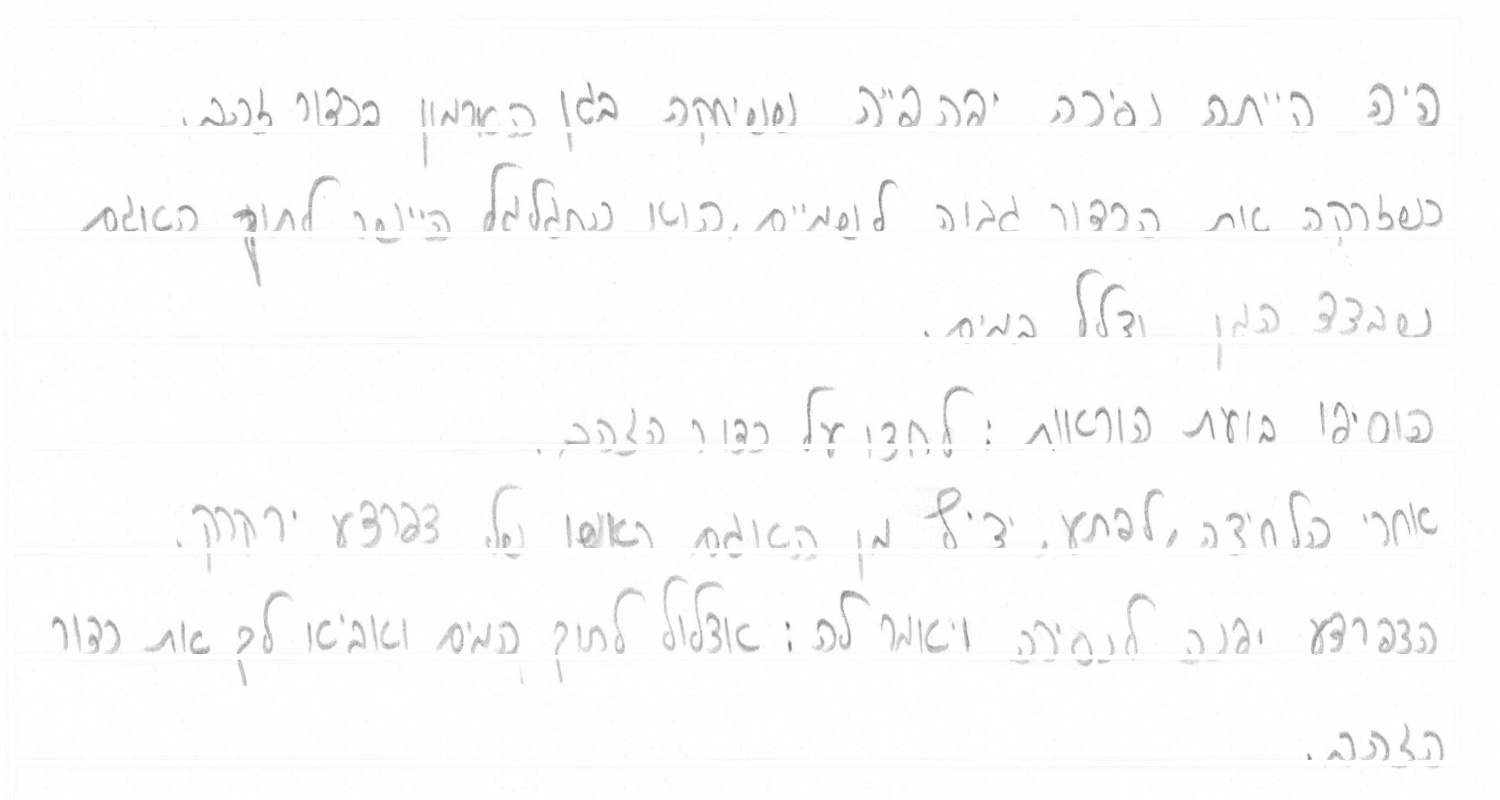 היה הייתה נסיכה יפהפייה ששיחקה בגן הארמון בכדור זהב.
כשזרקה את הכדור גבוה לשמיים, הוא התגלגל היישר לתוך האגם
שבצד הגן וצלל במים.
הוסיפו בועת הוראות: לחצו על כדור הזהב.
אחרי הלחיצה, לפתע, יציץ מן האגם ראשו של צפרדע ירקרק.
הצפרדע יפנה לנסיכה ויאמר לה: אצלול לתוך המים ואביא לך את כדור
הזהב.